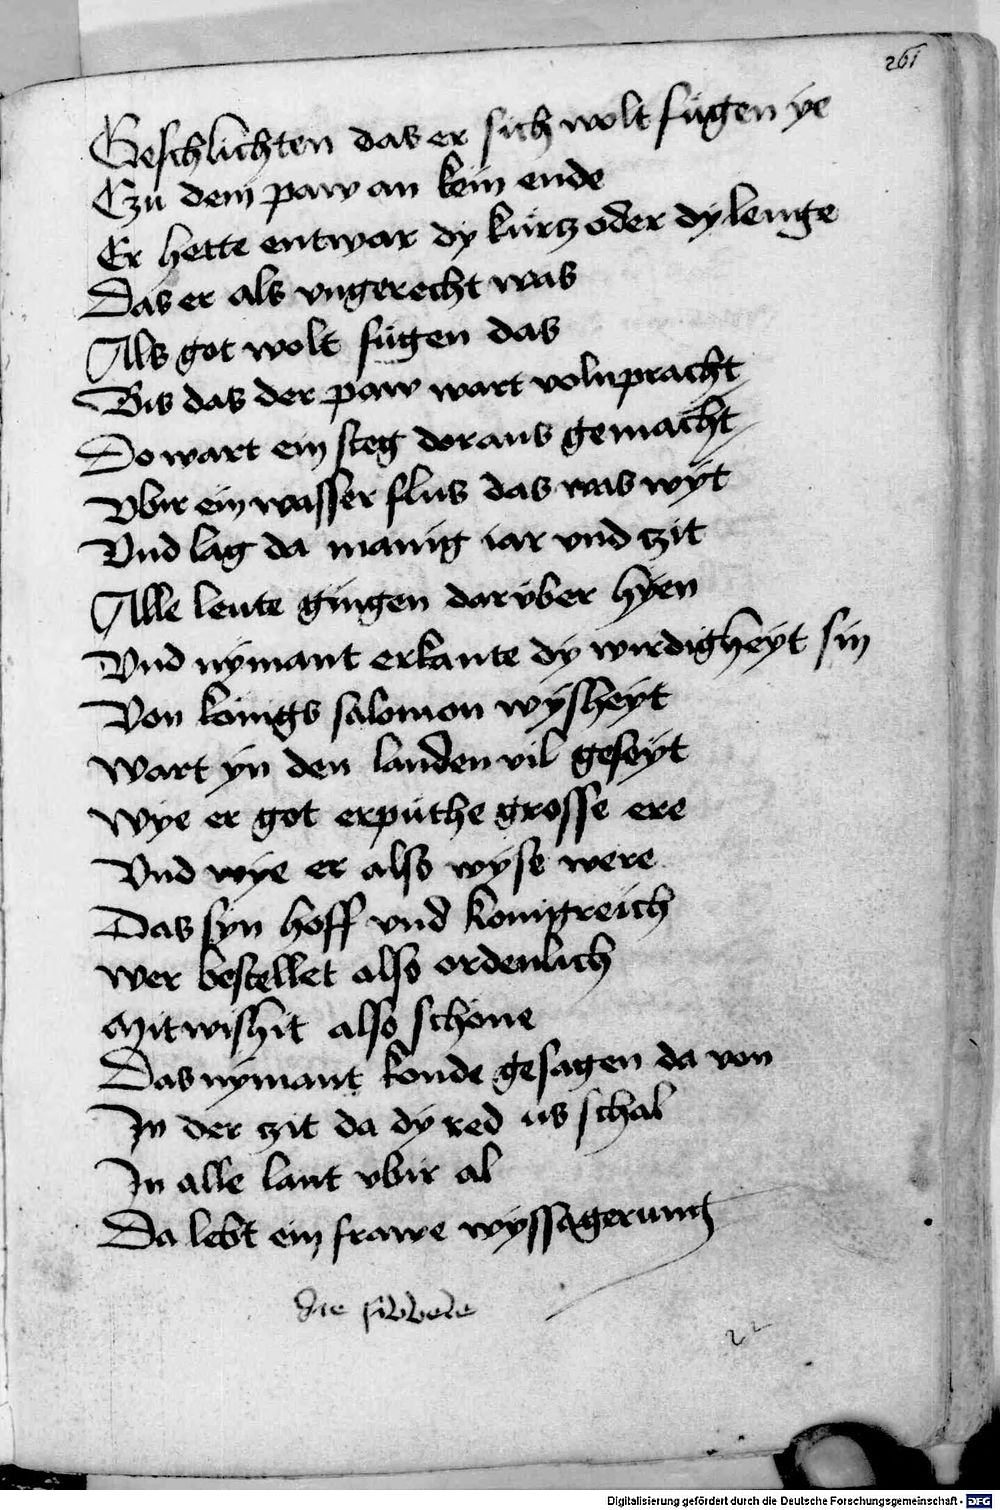 261
Geschlichten das er sich wolt fügen ye
Czu dem paw an kein ende
Er hette entwar dy kürtz oder dy lenge
Das er als vngerecht was
Als got wolt fügen das
Bis das der paw wart volnpracht
Do wart ein steg doraus gemacht
Vbir ein wasser flus das was wyt
Vnd lag da manig iar vnd czit
Alle leute gingen darvber hyen
Vnd nymant erkante dy wirdigheyt sin
Von konigs salomon wysheyt
Wart yn den landen vil geseyt
Wye er got erputhe grosse ere
Vnd wye er also wyse were
Das syn hoff vnd konigreich
Wer bestellet also ordenlich
Mit wishit also schone
Das nymant konde gesagen da von
In der czit da dy red us schal
In alle lant vbir al
Da lebt ein frawe wyssagerung
die
Digitalisierung gefördert durch die Deutsche Forschungsgemeinschaft - DFG